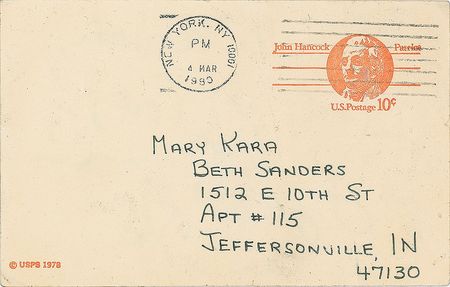 NEW YORK, NY 10001
PM
4 MAR
1980
John Hancock Patriot
U.S. Postage 10¢
MARY KARA
BETH SANDERS
1512 E 10TH ST
APT # 115
JEFFERSONVILLE, IN
47130
© USPS 1978